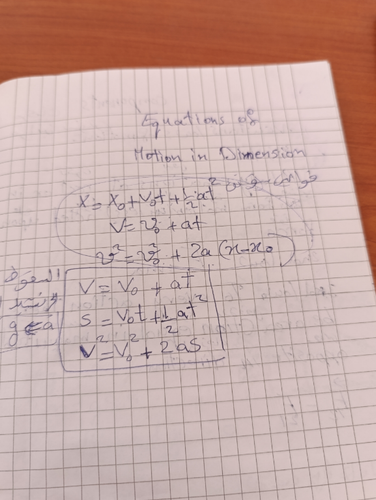 Equations of
Motion in Dimension
X = X₀ + V₀t + ½at²
V = V₀ + at
v² = v₀² + 2a(x-x₀)
V = V₀ + at
S = V₀t + ½at²
V² = V₀² + 2aS
g ← a
0